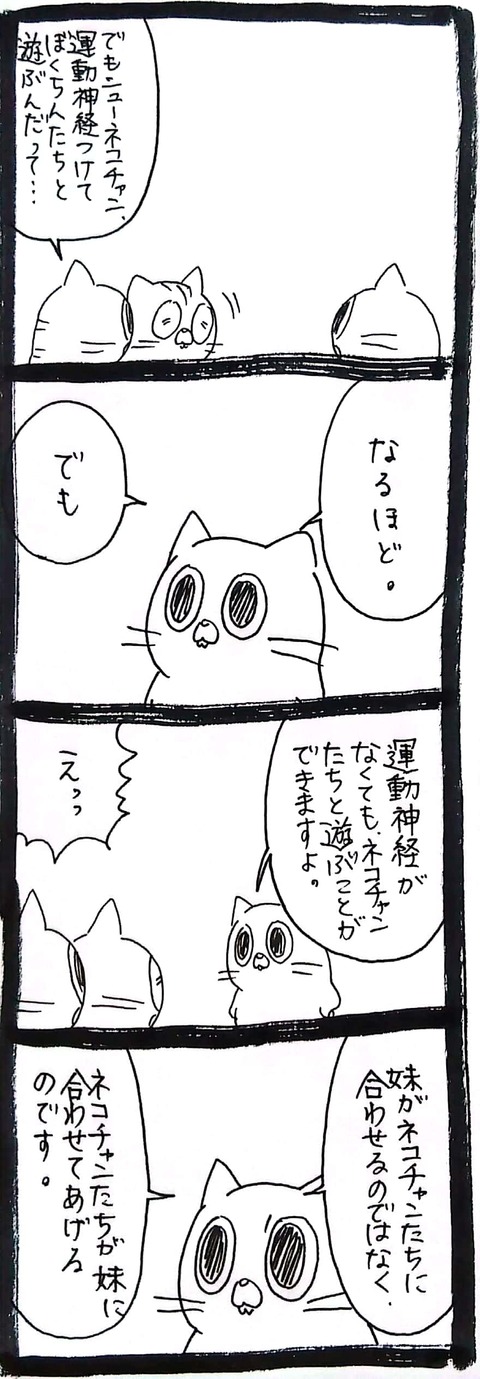 でもニューネコチャン、
運動神経つけて
ぼくちんたちと
遊ぶんだって…
なるほど。
でも
運動神経が
なくても、ネコチャン
たちと遊ぶことが
できますよ。
えっっ
妹がネコチャンたちに
合わせるのではなく、
ネコチャンたちが妹に
合わせてあげる
のです。